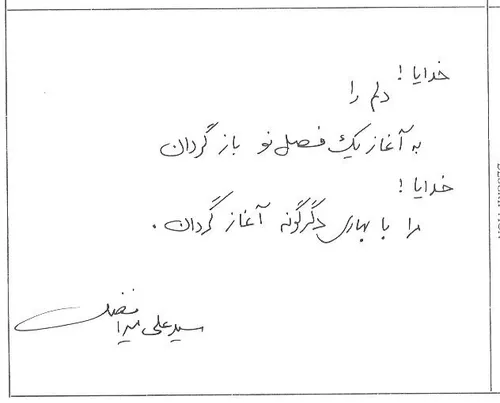 خدایا!
دلم را
به آغاز یک فصل نو باز گردان
خدایا!
مرا با بهاری دگرگونه آغاز گردان.
سید علی میرافضلی